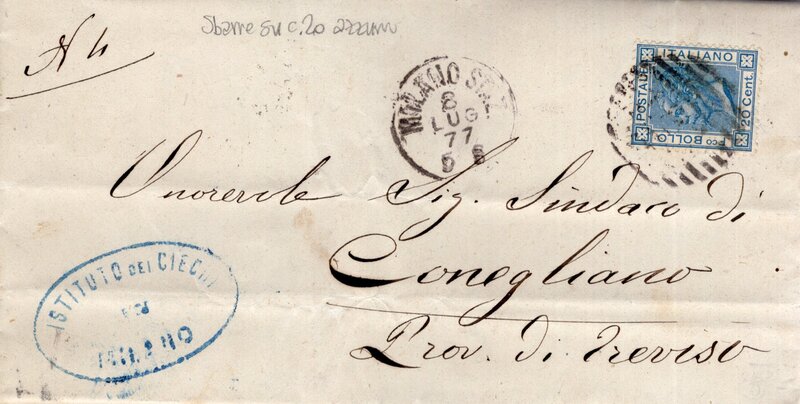 Sbarre su c. 20 azzurro
N 4
MILANO STAZ
8
LUG
77
5 S
ITALIANO
POSTALE
20 Cent.
Pco BOLLO
Onorevole Sig. Sindaco di
Conegliano
Prov. di Treviso
ISTITUTO DEI CIECHI
DI
MILANO